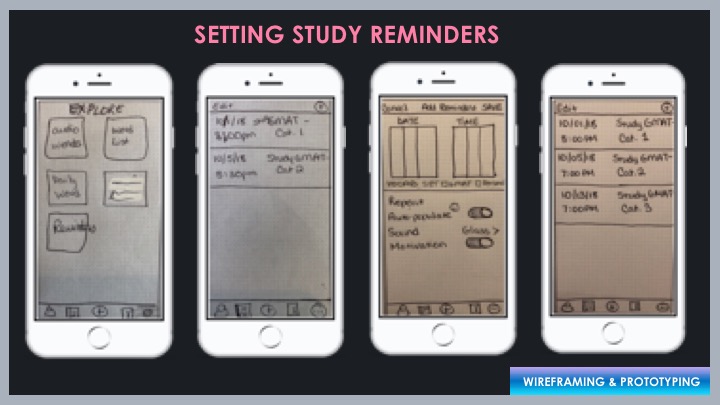 SETTING STUDY REMINDERS
EXPLORE
audio words
word List
Daily Word
Reminders
Edit
Study GMAT -
Cat. 1
10/5/18 Study GMAT-
Cat 2
Cancel Add Reminder SAVE
DATE TIME
Repeat
Auto-populate
Sound Glass >
Motivation
Edit
10/01/18 Study GMAT
8:00PM Cat. 1
10/05/18 Study GMAT-
7:00 PM Cat. 2
Study GMAT
7:00PM Cat. 3
WIREFRAMING & PROTOTYPING